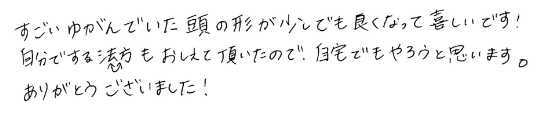 すごいゆがんでいた頭の形が少しでも良くなって喜しいです!
自分でする法方もおしえて頂いたので、自宅でもやろうと思います。
ありがとうございました!